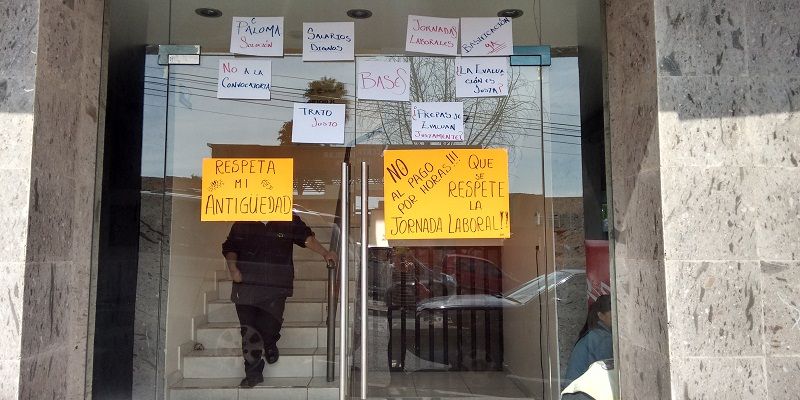 ¿PALOMA
SOLUCIÓN
SALARIOS
DIGNOS
JORNADAS
LABORALES
BASIFICACIÓN
YA
NO A LA
CONVOCATORIA
BASES
¿LA EVALUA
CIÓN ES
JUSTA?
TRATO
JUSTO
¿PREPAS SE
EVALUAN
JUSTAMENTE?
RESPETA
MI
ANTIGÜEDAD
NO
AL PAGO
POR HORAS!!!
QUE
SE
RESPETE
LA
JORNADA LABORAL!!